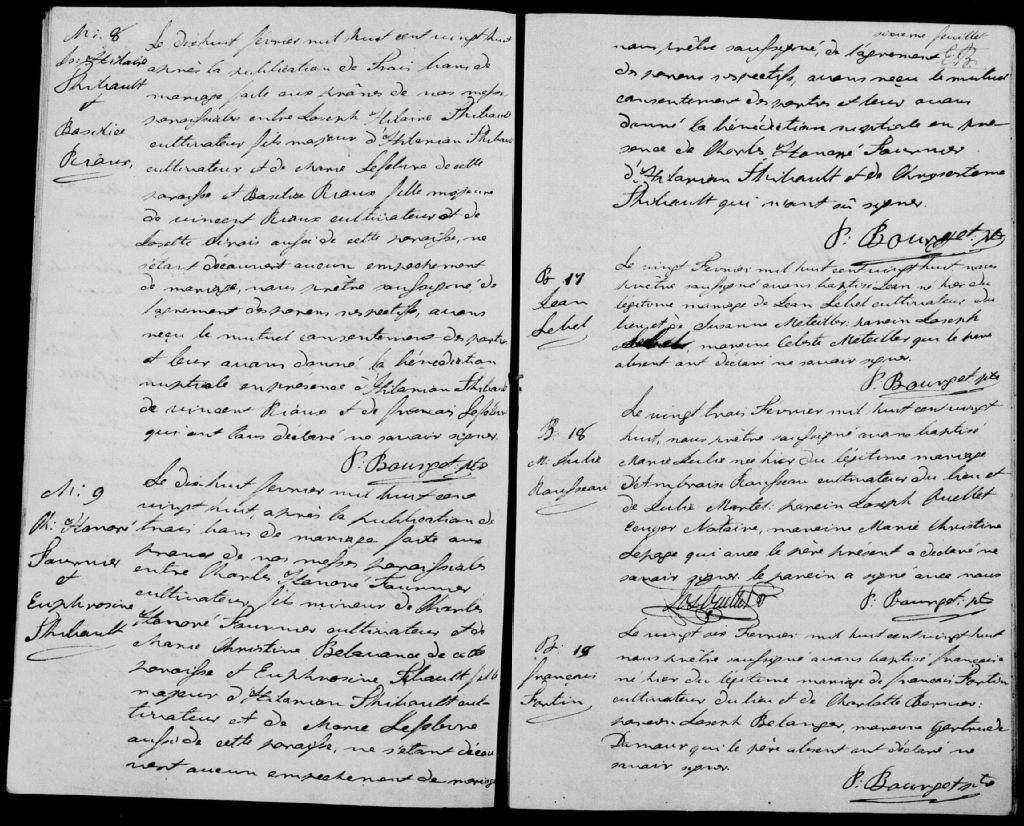 M: 8
Jos: Hilaire
Thibault
et
Basilice
Rioux,
Le dixhuit fevrier mil huit cent vingt huit
après la publication de trois bans de
mariage faite aux prônes de nos messes
paroissiales entre Joseph Hilaire Thibault
cultivateur fils majeur d'Hilarion Thibault
cultivateur et de Marie Lefebvre de cette
paroisse et Basilice Rioux fille majeure
de vincent Rioux cultivateur et de
Josette Sirois aussi de cette paroisse, ne
s'étant découvert aucun empechement
de mariage, nous prêtre soussigné, de
l'agrement des parens respectifs, avons
reçu le mutuel consentement des parties
et leur avons donné la bénédiction
nuptiale en presence d'Hilarion Thibault
de vincent Rioux et de francois Lefebvre
qui ont tous déclaré ne savoir signer.
P: Bourget ptre
M: 9
Ch: Honoré
Fournier
et
Euphrosine
Thibault
Le dixhuit fevrier mil huit cent
vingt huit, après la publication de
trois bans de mariage faite aux
prones de nos messes paroissiales
entre Charles Honoré Fournier
cultivateur, fils mineur de Charles
Honoré Fournier cultivateur et de
Marie Christine Belavance de cette
paroisse et Euphrosine Thibault fille
majeur d'Hilarion Thibault cul-
tivateur et de Marie Lefebvre
aussi de cette paroisse, ne s'etant décou
vert aucun empechement de mariage
sixieme feuillet
nous prêtre soussigné, de l'agrement
des parens respectifs, avons reçu le mutuel
consentement des parties et leur avons
donné la bénédiction nuptiale en pre
sence de Charles Honoré Fournier
d'Hilarion Thibault et de Chrysostome
Thibault qui n'ont sû signer.
P: Bourget ptre
B 17
Jean
Lebel
Le vingt Fevrier mil huit cent vingt huit nous
prêtre soussigné avons baptisé Jean né hier du
légitime mariage de Jean Lebel cultivateur du
lieu et de Susanne Metailler. parein Joseph
Lebel, mareine Celeste Metailler qui le pere
absent ont déclaré ne savoir signer.
P. Bourget ptre
B. 18
M: Julie
Rousseau
Le vingt trois Fevrier mil huit cent vingt
huit, nous prêtre soussigné avons baptisé
Marie Julie née hier du légitime mariage
d'Ambroise Rousseau cultivateur du lieu et
de Julie Martel. parein Joseph Ouellet
Ecuyer Notaire, mareine Marie Christine
Lepage qui avec le père présent a déclaré ne
savoir signer. le parein a signé avec nous
Jos Ouellet
P: Bourget: ptre
B: 19
françois
Fortin
Le vingt six Fevrier mil huit cent vingt huit
nous prêtre soussigné avons baptisé françois
né hier du légitime mariage de francois Fortin
cultivateur du lieu et de Charlotte Bernier:
parein Joseph Belanger, mareine Gertrude
Damour qui le père absent ont déclaré ne
savoir signer.
P: Bourget ptre